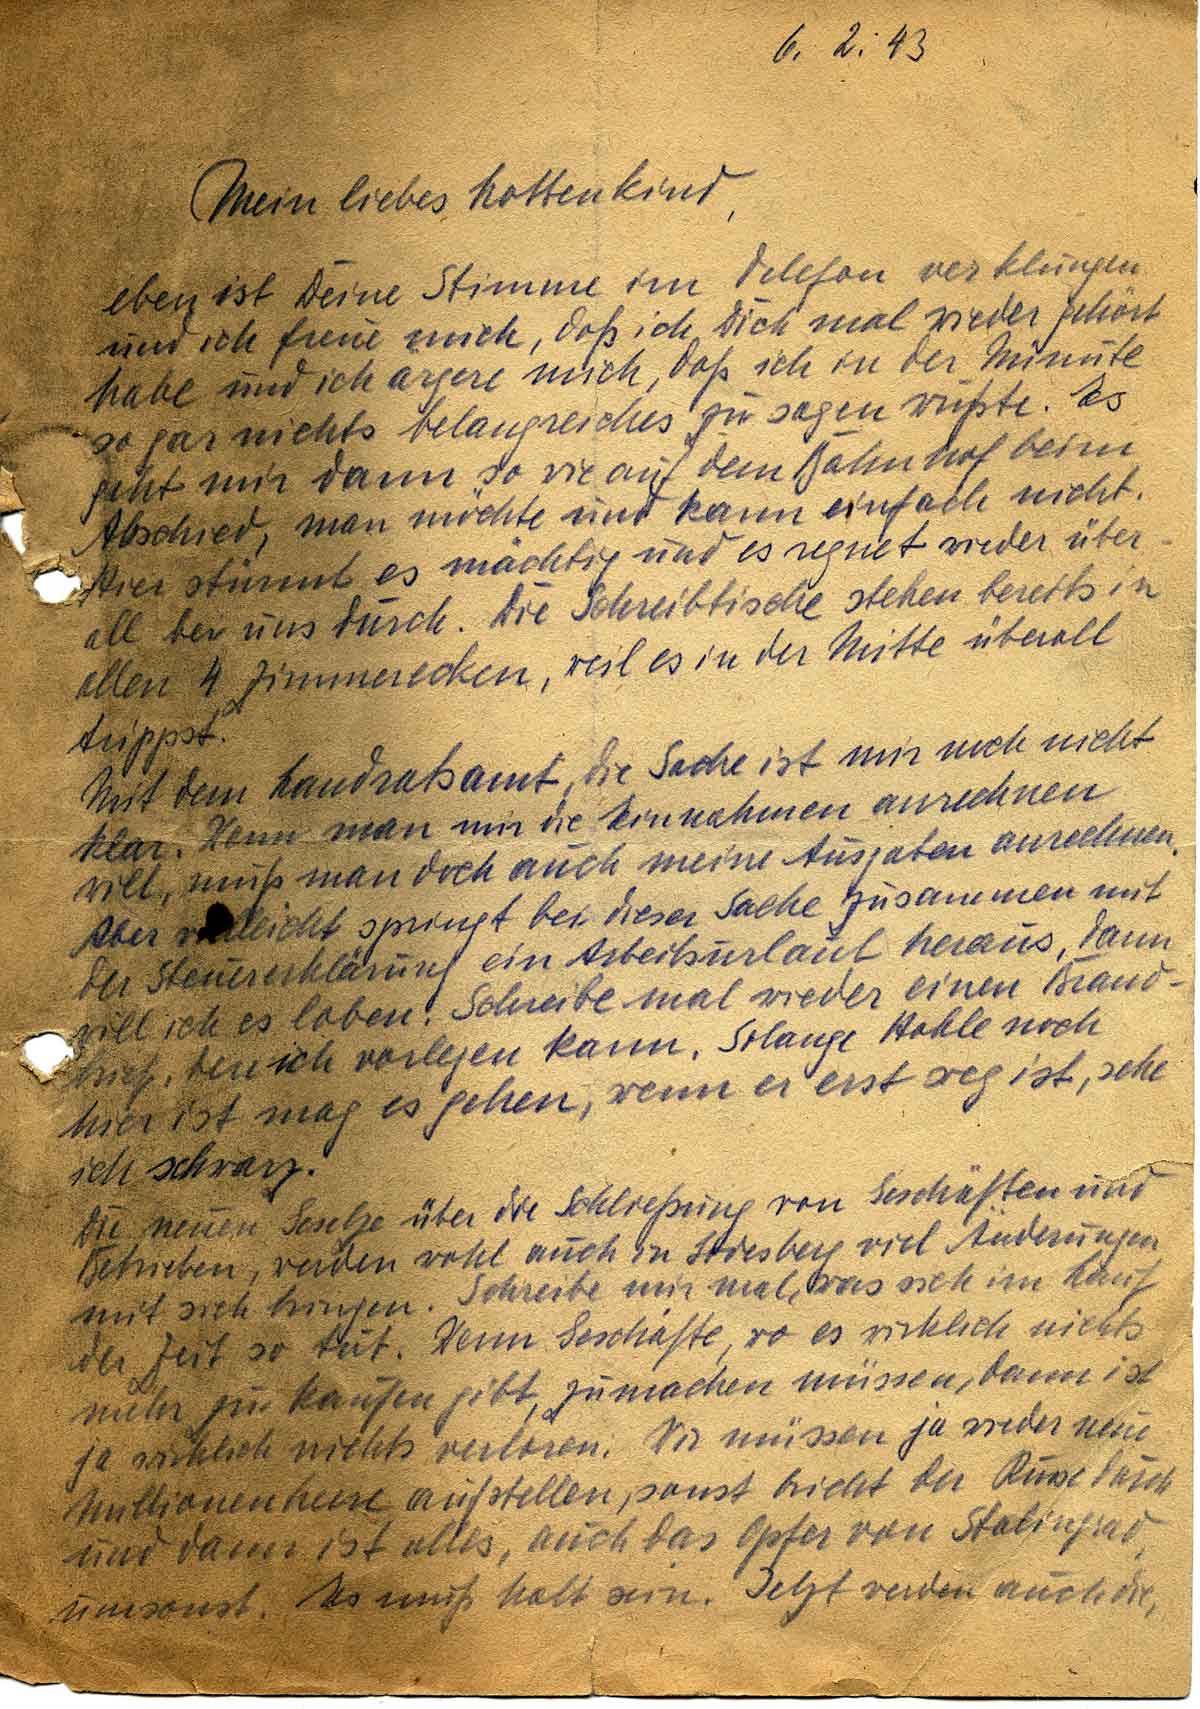 6. 2. 43
Mein liebes Lottenkind,
eben ist Deine Stimme im Telefon verklungen
und ich freue mich, daß ich Dich mal wieder gehört
habe und ich ärgere mich, daß ich in der Minute
so gar nichts belangreiches zu sagen wußte. Es
geht mir dann so wie auf dem Bahnhof beim
Abschied, man möchte und kann einfach nicht.
Hier stürmt es mächtig und es regnet wieder über-
all bei uns durch. Die Schreibtische stehen bereits in
allen 4 Zimmerecken, weil es in der Mitte überall
trippst.
Mit dem Landratsamt, die Sache ist mir noch nicht
klar. Wenn man mir die Einnahmen anrechnen
will, muß man doch auch meine Ausgaben anrechnen.
Aber vielleicht springt bei dieser Sache zusammen mit
der Steuererklärung ein Arbeitsurlaub heraus, dann
will ich es loben. Schreibe mal wieder einen Brand-
brief, den ich vorlegen kann. Solange Hohle noch
hier ist mag es gehen, wenn er erst weg ist, sehe
ich schwarz.
Die neuen Gesetze über die Schließung von Geschäften und
Betrieben, werden wohl auch in Godesberg viel Änderungen
mit sich bringen. Schreibe mir mal, was sich im Lauf
der Zeit so tut. Wenn Geschäfte, wo es wirklich nichts
mehr zu kaufen gibt, zumachen müssen, dann ist
ja wirklich nichts verloren. Wir müssen ja wieder neue
Millionenheere aufstellen, sonst bricht der Russe durch
und dann ist alles, auch das Opfer von Stalingrad,
umsonst. Es muß halt sein. Jetzt werden auch die,